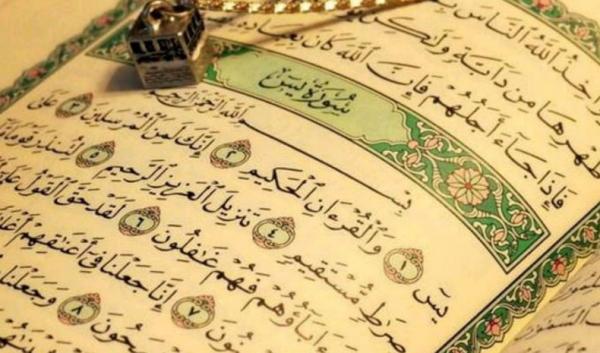 ٱللَّهُ ٱلنَّاسَ
ظَهْرِهَا مِن دَآبَّةٍ
فَإِذَا جَآءَ أَجَلُهُمْ فَإِنَّ ٱللَّهَ كَانَ
سُورَةُ يسٓ
بِسْمِ ٱللَّهِ ٱلرَّحْمَٰنِ ٱلرَّحِيمِ
يسٓ ١ وَٱلْقُرْءَانِ ٱلْحَكِيمِ ٢ إِنَّكَ لَمِنَ ٱلْمُرْسَلِينَ ٣ عَلَىٰ
صِرَٰطٍ مُّسْتَقِيمٍ ٤ تَنزِيلَ ٱلْعَزِيزِ ٱلرَّحِيمِ ٥ لِتُنذِرَ قَوْمًا
ءَابَآؤُهُمْ فَهُمْ غَٰفِلُونَ ٦ لَقَدْ حَقَّ ٱلْقَوْلُ
٧ إِنَّا جَعَلْنَا فِىٓ أَعْنَٰقِهِمْ
٨ وَجَعَلْنَا